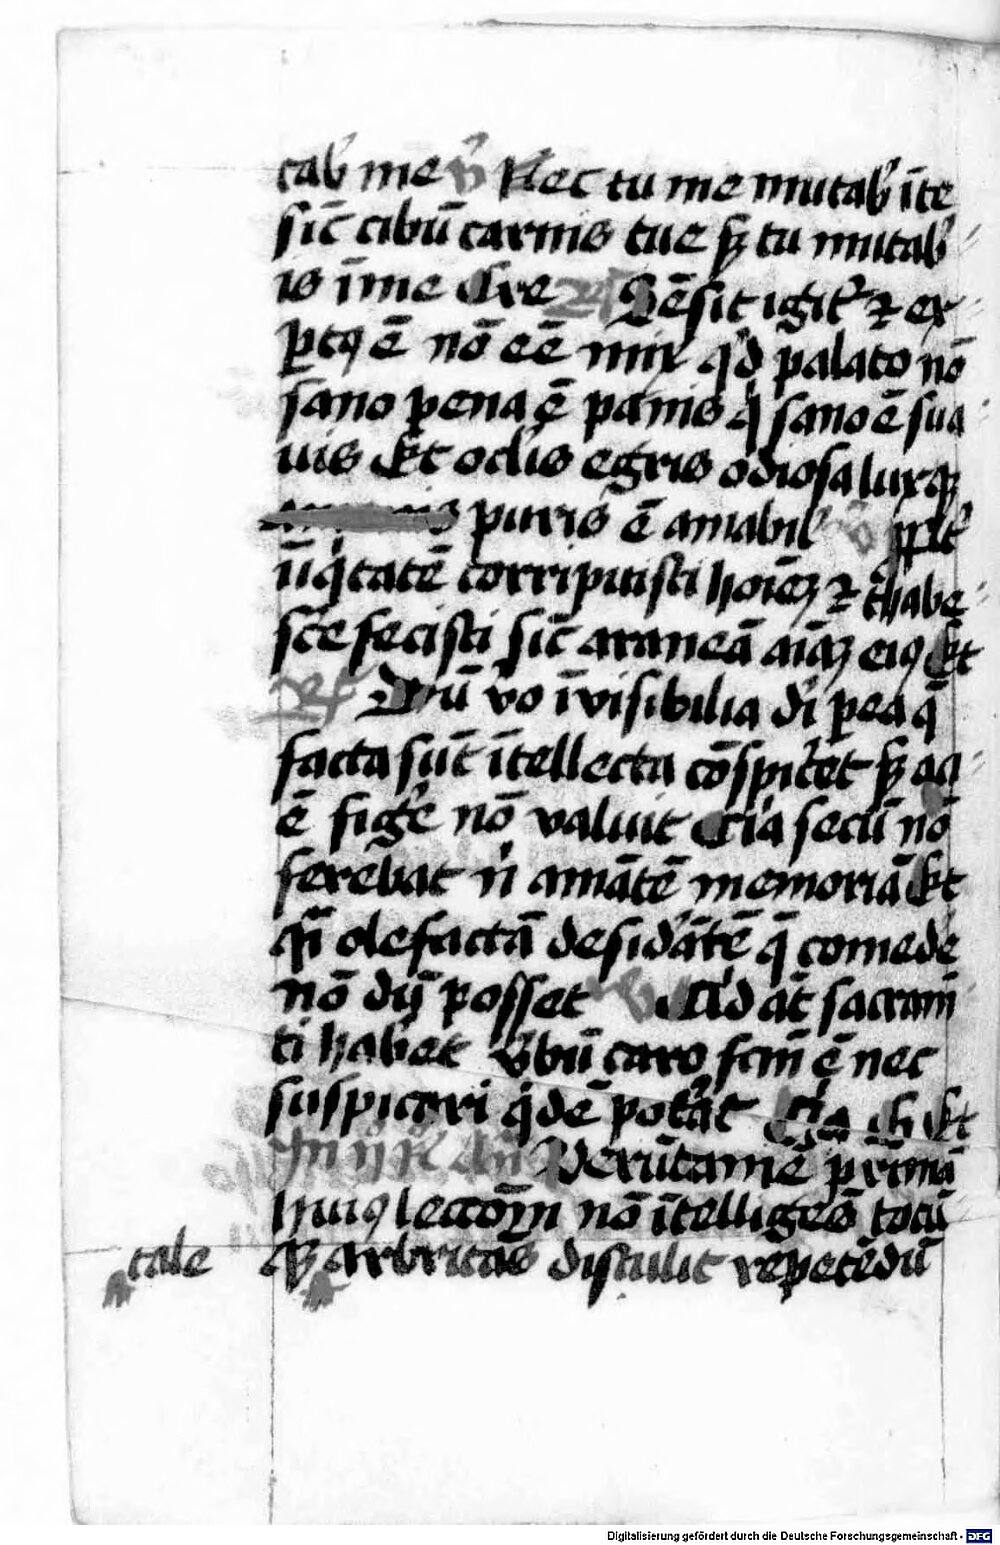 tab' me v̓ Nec tu me mutab' ī te
sic̄ cibū carnis tue sꝫ tu mutab'
is ī me Cre Sēsit igit' ⁊ ex
ꝑtꝰ ē nō eē mir̄ qd̓ palato nō
sano pena ē panis q̓ sano ē sua
uis Et oc̓lis egris odiosa lux q̄
puris ē amabil' v̓ ꝓpt'
īiq̓tatē corripuisti hoīeꝫ ⁊ thabe
sc̄e fecisti sic̄ araneā aīaꝫ eiꝰ Et
Dū v̓o īvisibilia di ꝑ ea q̄
facta sūt ītellecta cōspic̓et sꝫ aci
ē fig̓e nō valuit Cīa secū nō
ferebat n̓ amātē memoriā Et
q̄si olefactā desid̓ātē q̄ comed̓e
nō dū posset v̓ Qid āt sacram̄
ti hab̓et v̓bū caro fcm̄ ē nec
suspicari q̓dē pot̓at Cīa Et
Verūtamē
huiꝰ lecto̅m nō ītelligēs totū
tale arbritās distulit repetēdū
Digitalisierung gefördert durch die Deutsche Forschungsgemeinschaft - DFG